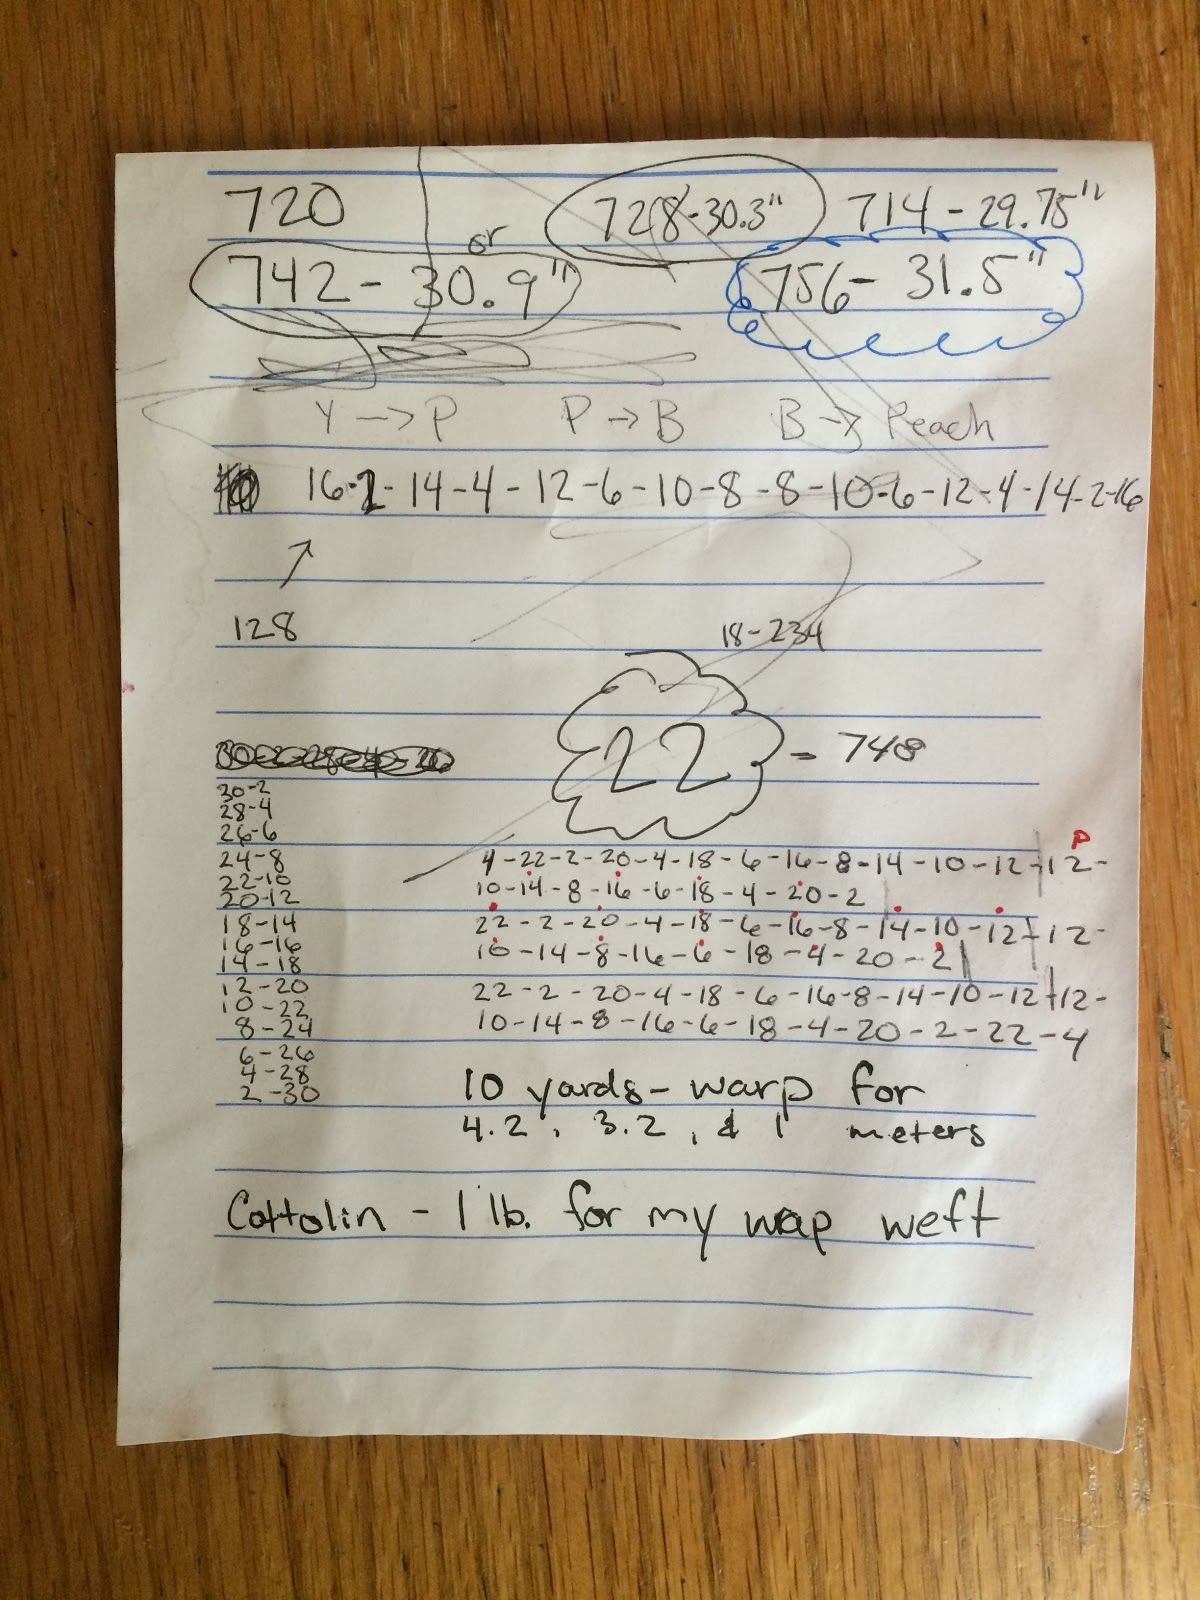 720 728-30.3" 714-29.75"
or
742- 30.9" 756- 31.5"
Y → P P → B B → Peach
16-2-14-4-12-6-10-8-8-10-6-12-4-14-2-16
↗
128 18-234
22 = 748
30-2
28-4
26-6
24-8
22-10
20-12
18-14
16-16
14-18
12-20
10-22
8-24
6-26
4-28
2-30
P
4-22-2-20-4-18-6-16-8-14-10-12-12-
10-14-8-16-6-18-4-20-2
22-2-20-4-18-6-16-8-14-10-12-12-
10-14-8-16-6-18-4-20-2
22-2-20-4-18-6-16-8-14-10-12-12-
10-14-8-16-6-18-4-20-2-22-4
10 yards- warp for
4.2, 3.2, & 1 meters
Cottolin - 1 lb. for my wap weft